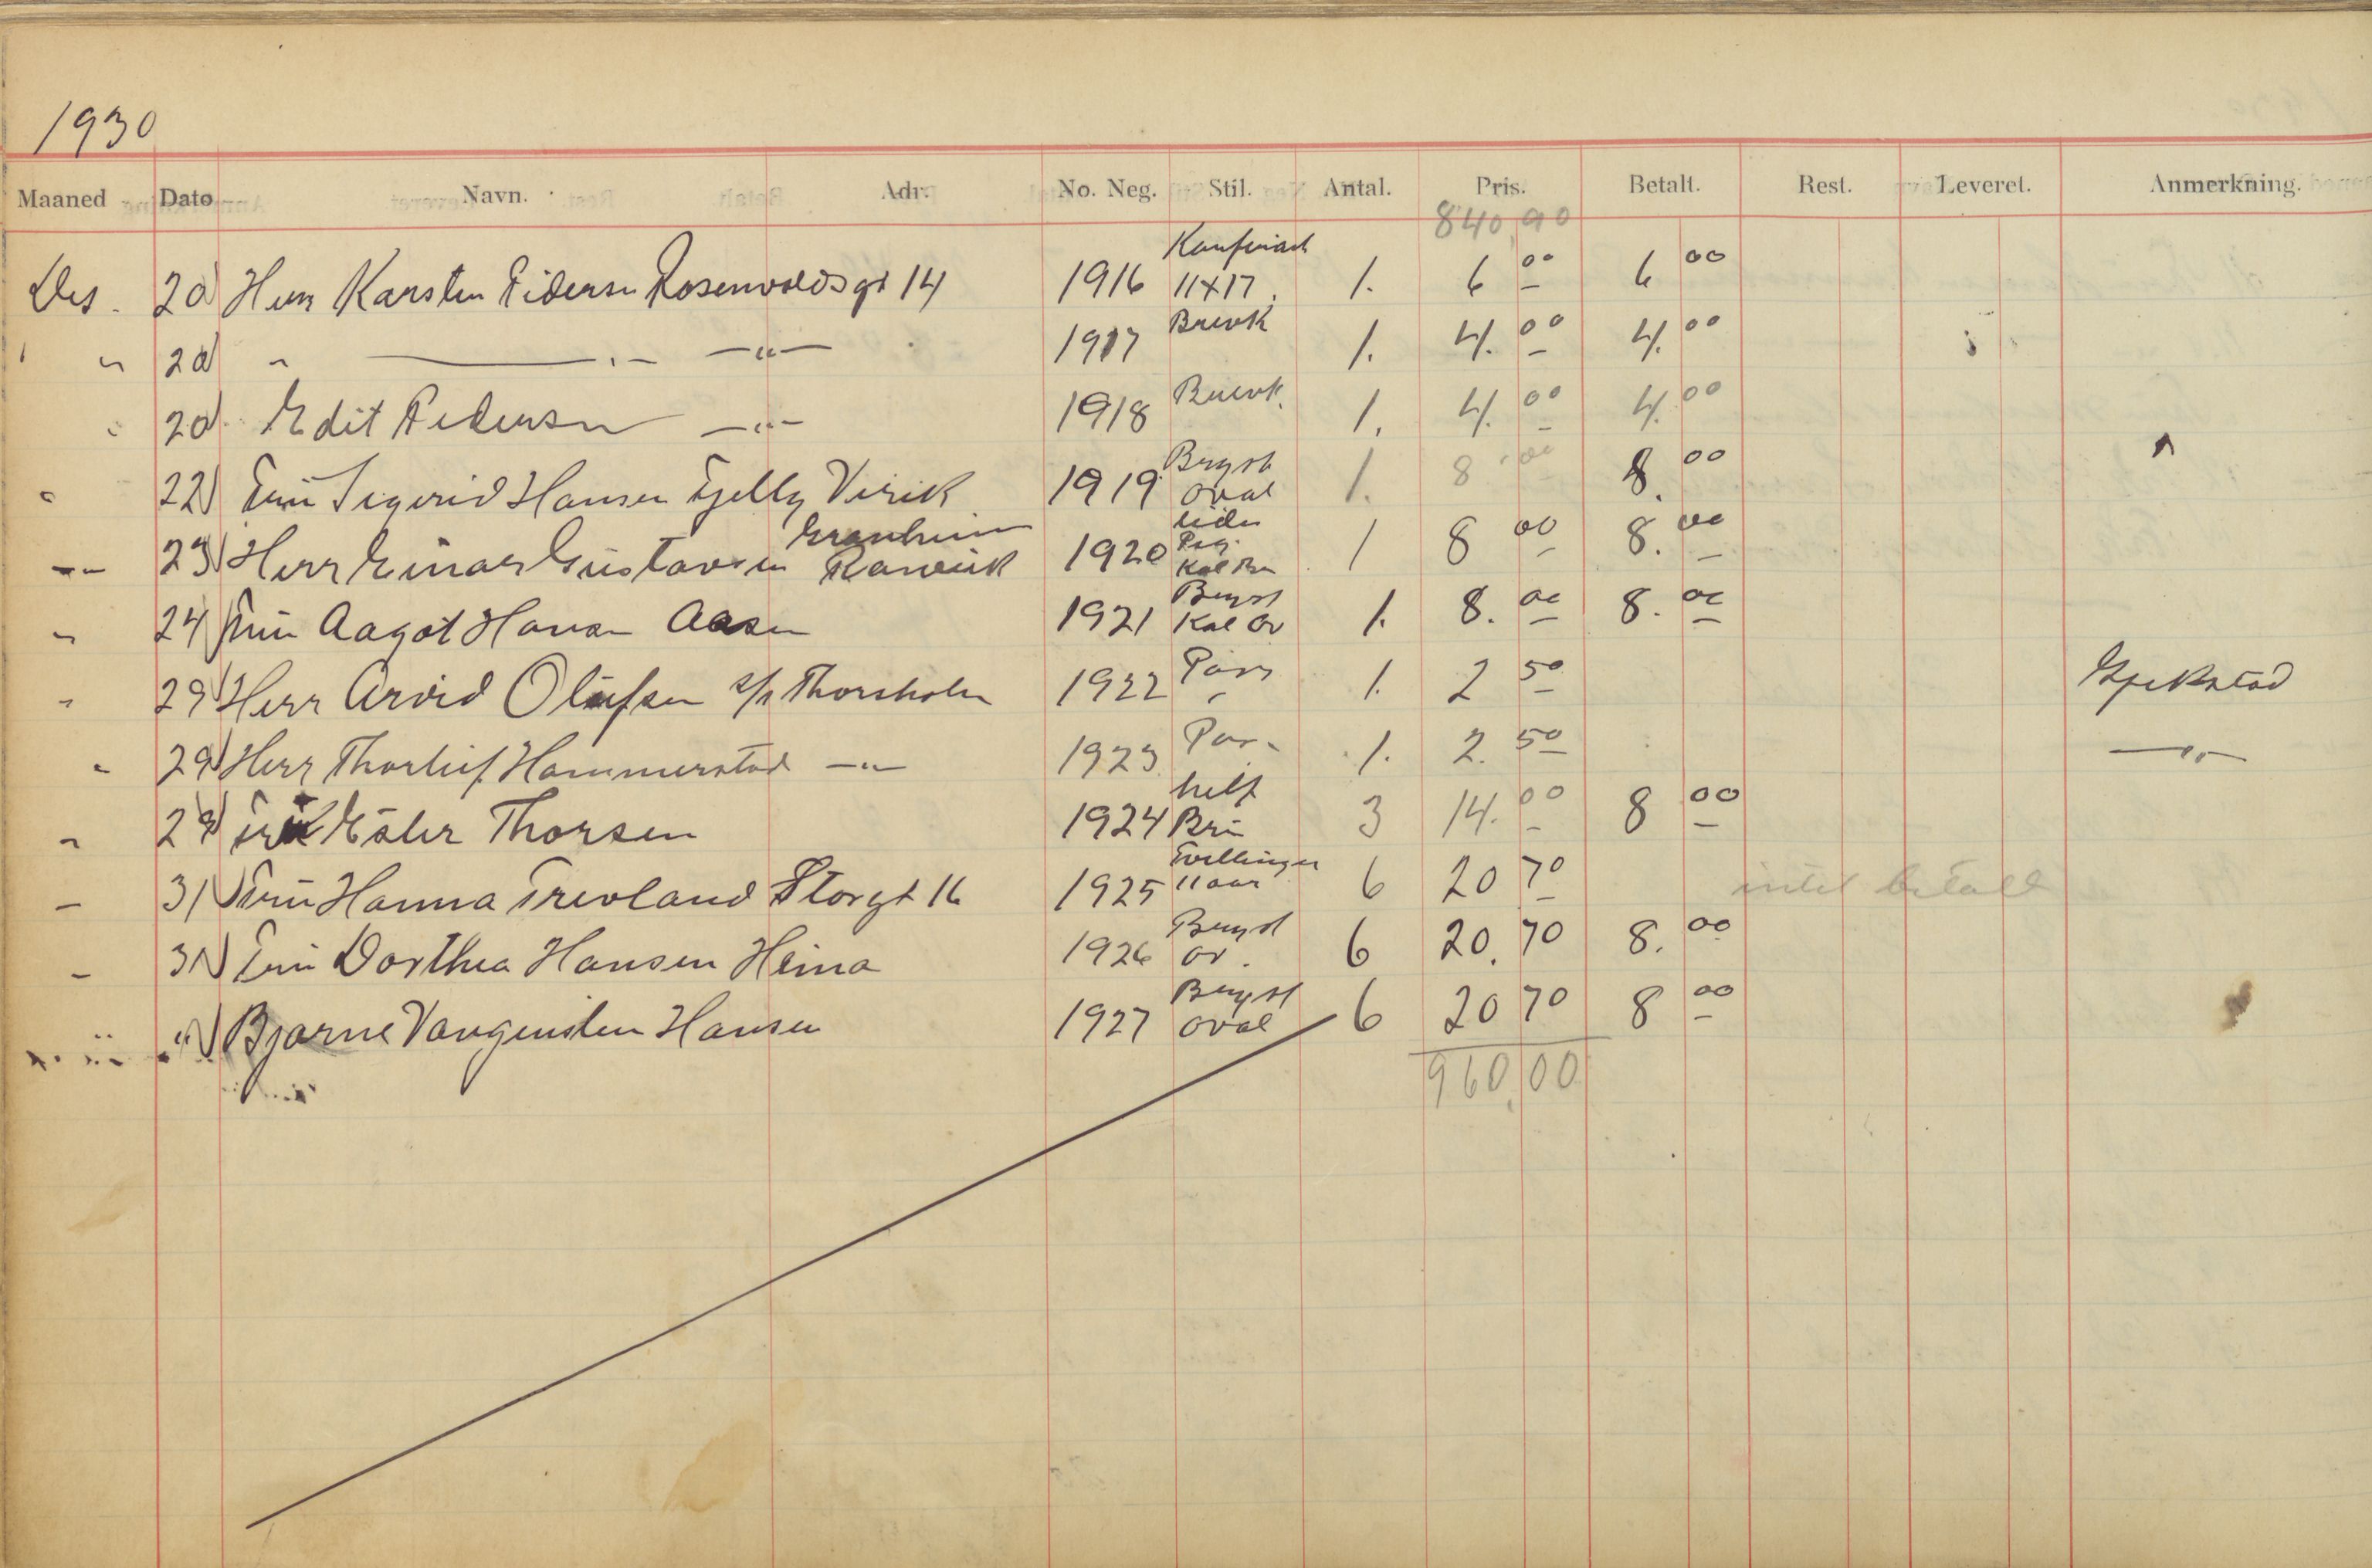 1930
Maaned Dato Navn. Adr. No. Neg. Stil. Antal. Pris. Betalt. Rest. Leveret. Anmerkning.
840,90
Des. 20 Herr Karsten Pedersen Rosenvoldsgt 14 1916 11x17. 1. 6 00 6 00
" 20 " — " — — " — 1917 Brevk 1. 4. 00 4. 00
" 20 Edit Pedersen — " — 1918 Brevk. 1. 4. 00 4. 00
" 22 Frü Sigerid Hansen Fjelly Virik 1919 Bryst Oval 1. 8 00 8. 00
— " — 23 Herr Einar Güstavsen Granheim 1920 1 8 00 8. 00
" 24 Frü Aagot Hansen Aasen 1921 Bryst Kal Ov 1. 8. 00 8. 00
" 29 Herr Arvid Olüfsen s/s Thorsholm 1922 Pass 1. 2 50
" 29 Herr Thorleif Hammerstad — " — 1923 Pas. 1. 2. 50 — " —
" 29 Frk Ester Thorsen 1924 helf Brü 3 14. 00 8 00
— 31 Frü Hanna Trevland Storgt 16 1925 Tvillinger 11 aar 6 20 70 intet betalt
— 31 Frü Dorthea Hansen Heina 1926 Bryst ov. 6 20. 70 8. 00
" Bjarne Vangensten Hansen 1927 Bryst oval 6 20 70 8 00
960,00